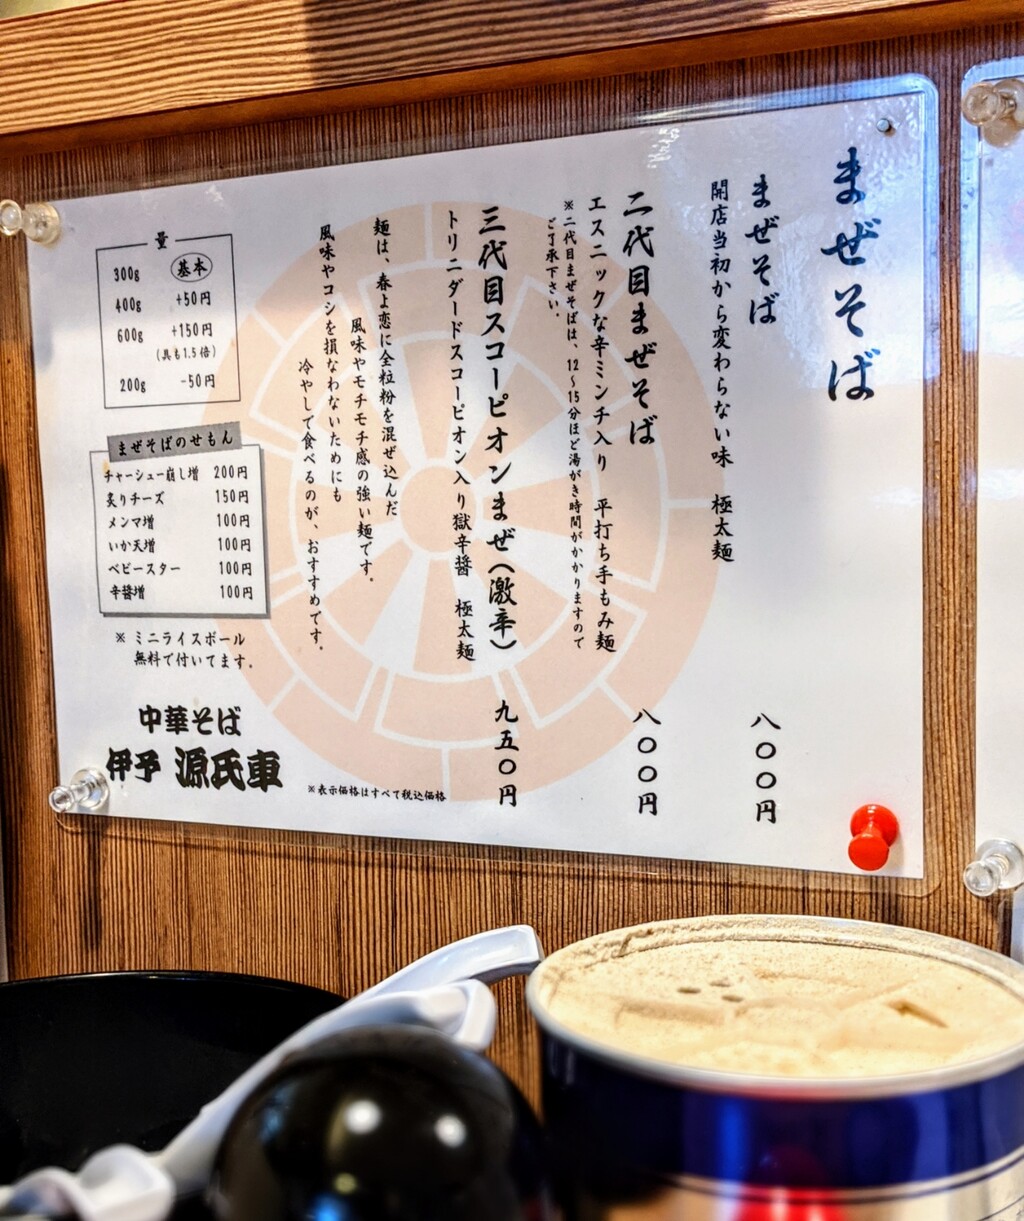 まぜそば
まぜそば
八〇〇円
開店当初から変わらない味 極太麺
二代目まぜそば
八〇〇円
エスニックな辛ミンチ入り 平打ち手もみ麺
※二代目まぜそばは、12〜15分ほど湯がき時間がかかりますので
ご了承下さい。
三代目スコーピオンまぜ(激辛)
九五〇円
トリニダードスコーピオン入り獄辛醤 極太麺
麺は、春よ恋に全粒粉を混ぜ込んだ
風味やモチモチ感の強い麺です。
風味やコシを損なわないためにも
冷やしで食べるのが、おすすめです。
量
300g 基本
400g +50円
600g +150円
(具も1.5倍)
200g -50円
まぜそばのせもん
チャーシュー崩し増 200円
炙りチーズ 150円
メンマ増 100円
いか天増 100円
ベビースター 100円
辛醤増 100円
※ ミニライスボール
無料で付いてます。
中華そば
伊予 源氏車
※表示価格はすべて税込価格